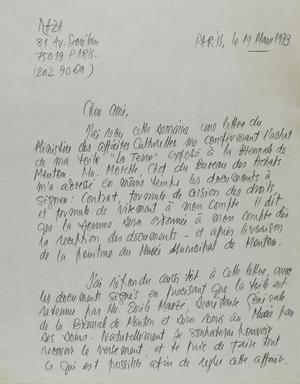 NAZA
81 Av. Secrétan
75019 PARIS-
(202 90 69)
PARIS, le 19 Mars 1973
Cher Ami,
J'ai reçu cette semaine une lettre du
Ministère des Affaires Culturelles me confirmant l'achat
de ma toile "La Terre" exposé à la Biennale de
Menton. Mr. Morelle, Chef du Bureau des Achats
m'a adressé en même temps les documents à
signer: Contrat, formule de cession des droits,
et formule de virement à mon compte. Il dit
que la somme sera ordonnée à mon compte dès
la reception des documents - et après livraison
de la peinture au Musée Municipal de Menton.
J'ai répondu aussi tôt à cette lettre, avec
les documents signés en precisant que la toile est
retenue par Mr. Emile Marzé Secrétaire Général
de la Biennale de Menton et sera remis au Musée par
ses soins. Naturellement je souhaiterai pouvoir
recevoir le versement, et je prie de faire tout
ce qui est possible afin de regler cette affaire.